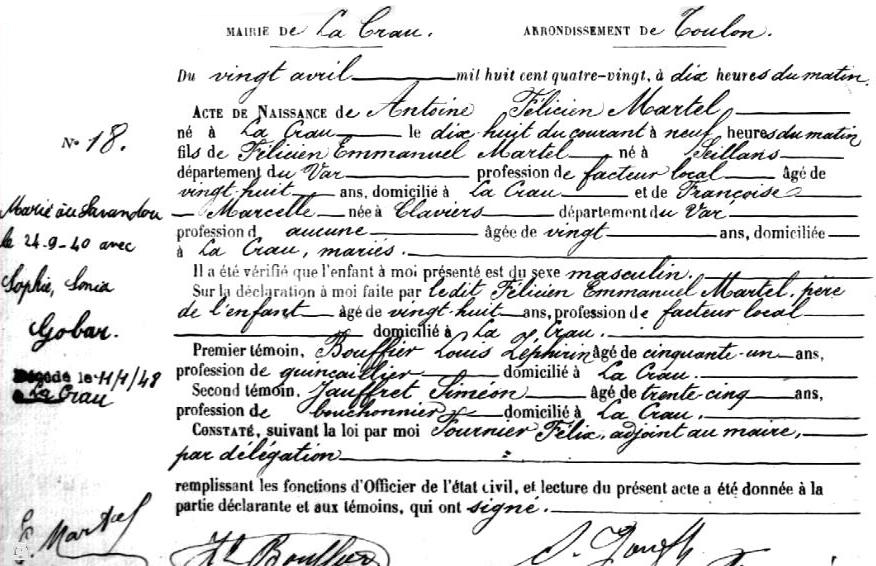 MAIRIE DE La Crau. ARRONDISSEMENT DE Toulon.
Du vingt avril mil huit cent quatre-vingt, à dix heures du matin.
ACTE DE NAISSANCE de Antoine Félicien Martel
né à La Crau le dix huit du courant à neuf heures du matin
fils de Félicien Emmanuel Martel né à Seillans
département du Var profession de facteur local âgé de
vingt huit ans, domicilié à La Crau et de Françoise
Marcelle née à Claviers département du Var
profession d aucune âgée de vingt ans, domiciliée
à La Crau, mariés.
Il a été vérifié que l'enfant à moi présenté est du sexe masculin.
Sur la déclaration à moi faite par ledit Félicien Emmanuel Martel, père
de l'enfant âgé de vingt huit ans, profession de facteur local
domicilié à La Crau.
Premier témoin, Bouffier Louis Zéphirin âgé de cinquante-un ans,
profession de quincaillier domicilié à La Crau.
Second témoin, Jauffret Siméon âgé de trente cinq ans,
profession de bouchonnier domicilié à La Crau.
CONSTATÉ, suivant la loi par moi Fournier Félix, adjoint au maire,
par délégation
remplissant les fonctions d'Officier de l'état civil, et lecture du présent acte a été donnée à la
partie déclarante et aux témoins, qui ont signé.
N° 18.
Marié au Lavandou
le 24-9-40 avec
Sophie, Sonia
Gobar.
Décédé le 11/1/48
La Crau
Martel
Bouffier